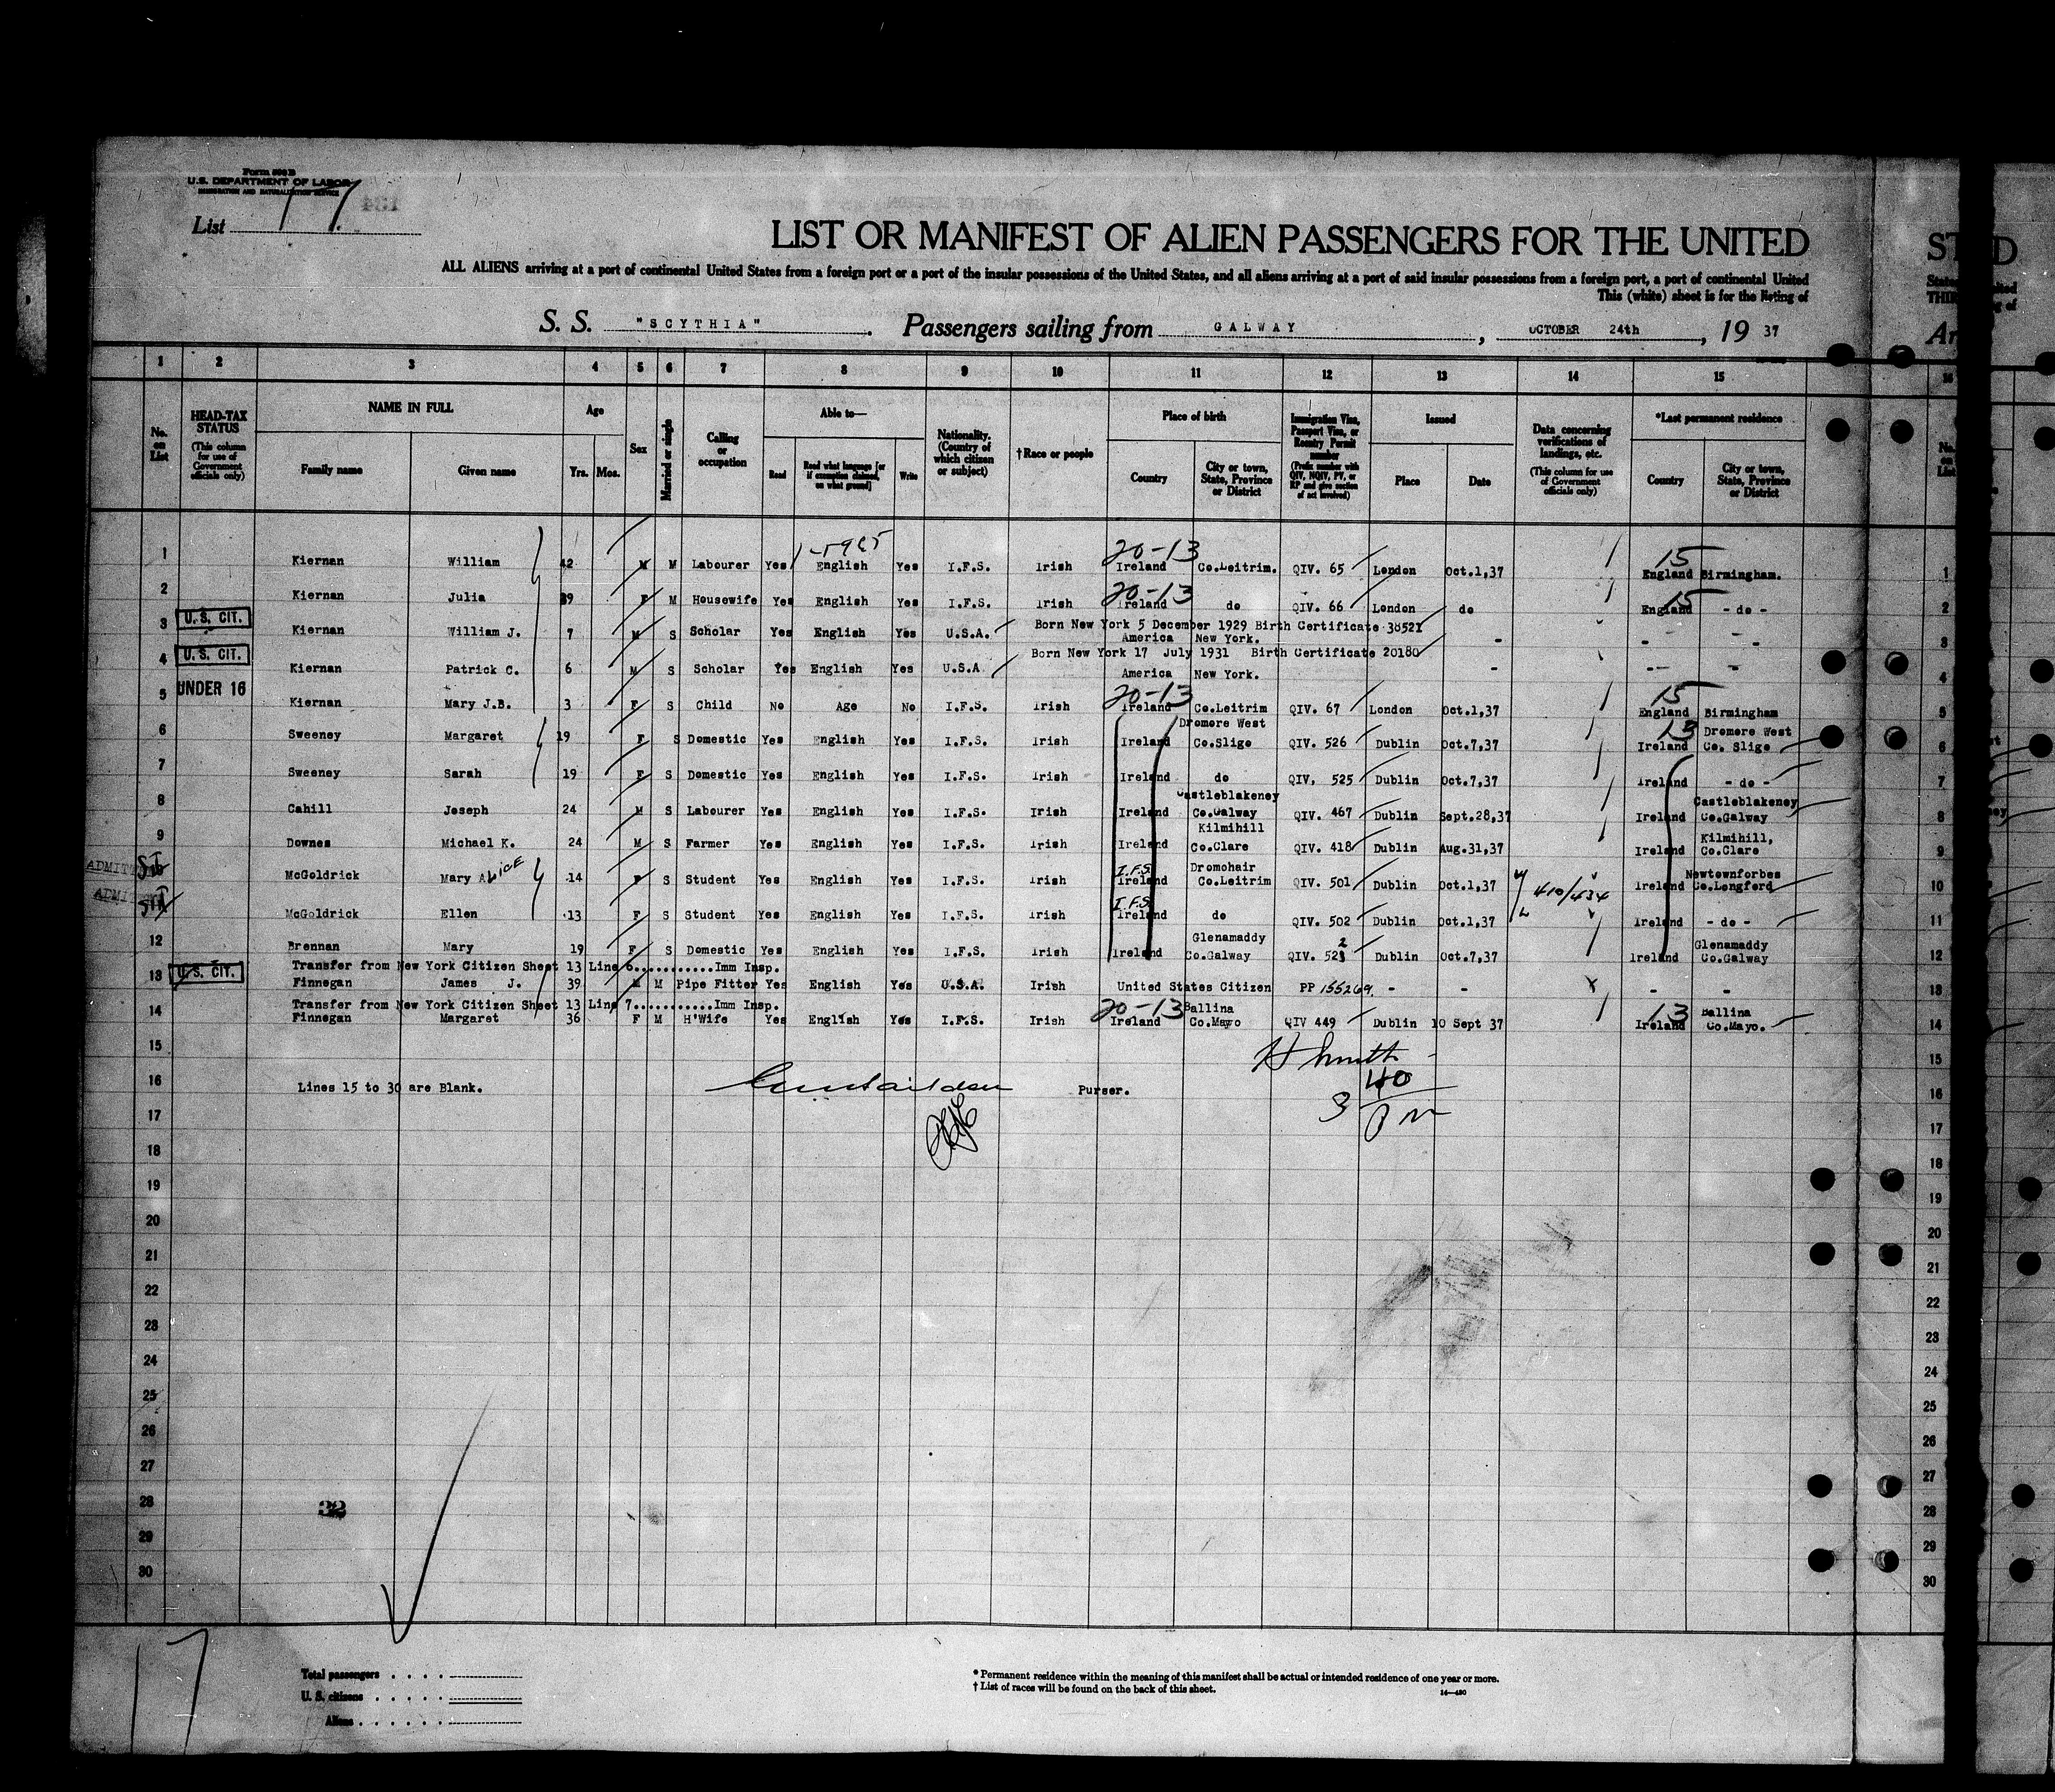 Form 500 B
U.S. DEPARTMENT OF LABOR
IMMIGRATION AND NATURALIZATION SERVICE
List 17
LIST OR MANIFEST OF ALIEN PASSENGERS FOR THE UNITED
ALL ALIENS arriving at a port of continental United States from a foreign port or a port of the insular possessions of the United States, and all aliens arriving at a port of said insular possessions from a foreign port, a port of continental United
This (white) sheet is for the listing of
S. S. "SCYTHIA". Passengers sailing from GALWAY, OCTOBER 24th, 19 37
1 2 3 4 5 6 7 8 9 10 11 12 13 14 15
No. on List
HEAD-TAX STATUS (This column for use of Government officials only)
NAME IN FULL Family name Given name
Age Yrs. Mos.
Sex
Married or single
Calling or occupation
Able to— Read Read what language [or if exemption claimed, on what ground] Write
Nationality. (Country of which citizen or subject)
†Race or people
Place of birth Country City or town, State, Province or District
Immigration Visa, Passport Visa, or Reentry Permit number (Prefix number with QIV, NQIV, PV, or RP and give section of act involved)
Issued Place Date
Data concerning verifications of landings, etc. (This column for use of Government officials only)
*Last permanent residence Country City or town, State, Province or District
20-13 15
1 Kiernan William 42 M M Labourer Yes English Yes I.F.S. Irish Ireland Co.Leitrim. QIV. 65 London Oct.1,37 England Birmingham. 1
20-13 15
2 Kiernan Julia 39 F M Housewife Yes English Yes I.F.S. Irish Ireland do QIV. 66 London do England - do - 2
U.S. CIT. Born New York 5 December 1929 Birth Certificate 38521
3 Kiernan William J. 7 M S Scholar Yes English Yes U.S.A. America New York. - - - 3
U.S. CIT. Born New York 17 July 1931 Birth Certificate 20180
4 Kiernan Patrick C. 6 M S Scholar Yes English Yes U.S.A America New York. - -- - 4
UNDER 16 20-13 15
5 Kiernan Mary J.B. 3 F S Child No Age No I.F.S. Irish Ireland Co.Leitrim QIV. 67 London Oct.1,37 England Birmingham 5
Dromore West 13 Dromore West
6 Sweeney Margaret 19 F S Domestic Yes English Yes I.F.S. Irish Ireland Co.Sligo QIV. 526 Dublin Oct.7,37 Ireland Co. Sligo 6
7 Sweeney Sarah 19 F S Domestic Yes English Yes I.F.S. Irish Ireland do QIV. 525 Dublin Oct.7,37 Ireland - do - 7
Castleblakeney Castleblakeney
8 Cahill Joseph 24 M S Labourer Yes English Yes I.F.S. Irish Ireland Co.Galway QIV. 467 Dublin Sept.28,37 Ireland Co.Galway 8
Kilmihill Kilmihill,
9 Downes Michael K. 24 M S Farmer Yes English Yes I.F.S. Irish Ireland Co.Clare QIV. 418 Dublin Aug.31,37 Ireland Co.Clare 9
I.F.S. Dromohair Newtownforbes
McGoldrick Mary Alice 14 F S Student Yes English Yes I.F.S. Irish Ireland Co.Leitrim QIV. 501 Dublin Oct.1,37 410/434 Ireland Co.Longford 10
I.F.S.
McGoldrick Ellen 13 F S Student Yes English Yes I.F.S. Irish Ireland do QIV. 502 Dublin Oct.1,37 Ireland - do - 11
Glenamaddy Glenamaddy
12 Brennan Mary 19 F S Domestic Yes English Yes I.F.S. Irish Ireland Co.Galway QIV. 522 Dublin Oct.7,37 Ireland Co.Galway 12
Transfer from New York Citizen Sheet 13 Line 6............Imm Insp.
13 U.S. CIT. Finnegan James J. 39 M M Pipe Fitter Yes English Yes U.S.A. Irish United States Citizen PP 155269. - - x - - 13
Transfer from New York Citizen Sheet 13 Line 7............Imm Insp. 20-13 Ballina 13 Ballina
14 Finnegan Margaret 36 F M H'Wife Yes English Yes I.F.S. Irish Ireland Co.Mayo QIV 449 Dublin 10 Sept 37 Ireland Co.Mayo. 14
15 H Smith 15
16 Lines 15 to 30 are Blank. Purser. 3 40 PM 16
17 17
18 18
19 19
20 20
21 21
22 22
23 23
24 24
25 25
26 26
27 27
28 32 28
29 29
30 30
17
Total passengers
U. S. citizens
Aliens
* Permanent residence within the meaning of this manifest shall be actual or intended residence of one year or more.
† List of races will be found on the back of this sheet.
14—430